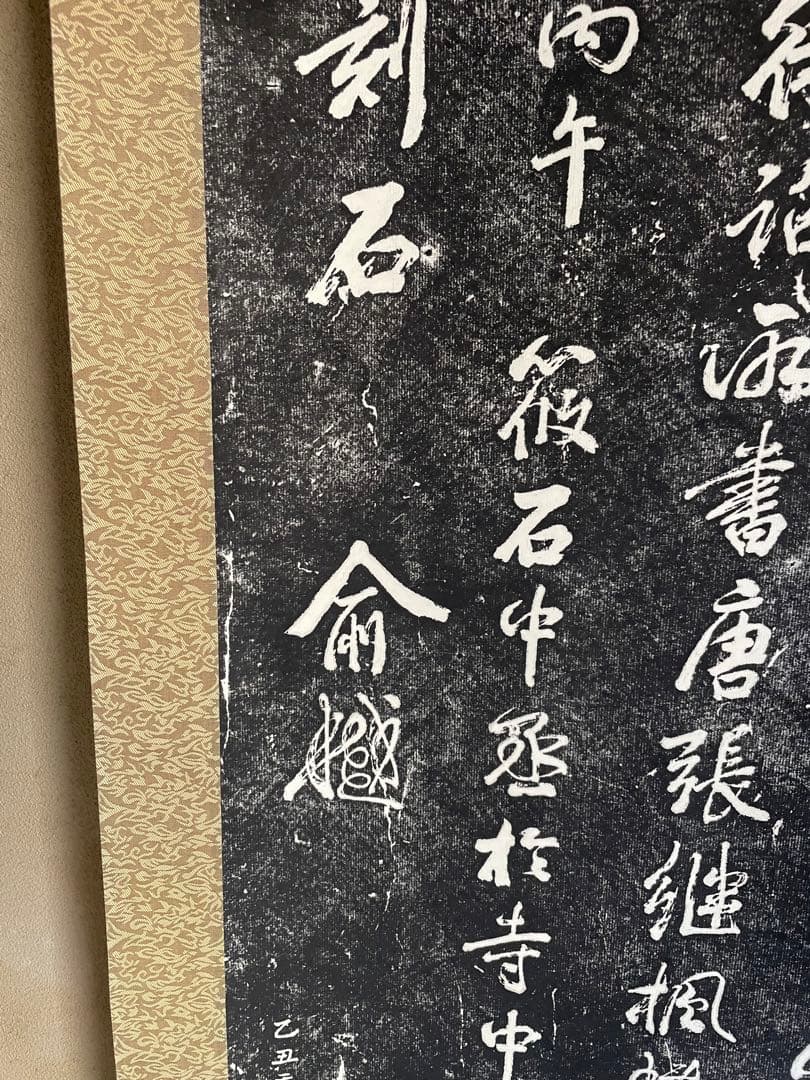 諸游書唐張继楓
丙午
筱石中丞於寺中
刻石
俞樾
乙丑